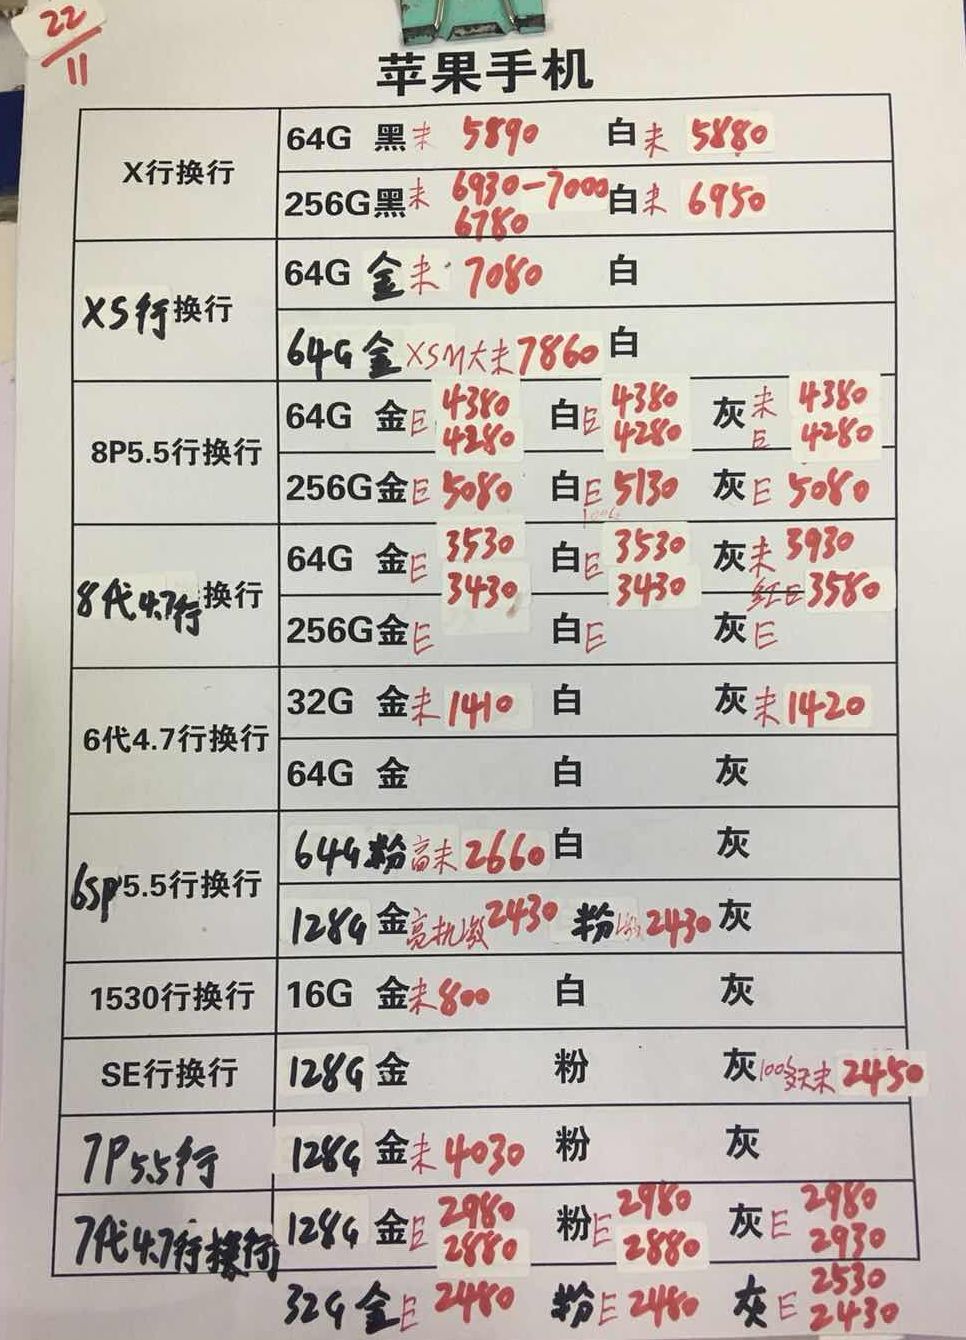 22/11
苹果手机
X行换行
64G 黑 未 5890 白 未 5880
256G 黑 未 6930-7000 6780 白 未 6950
XS行换行
64G 金 未 7080 白
64G 金 XSM大未 7860 白
8P5.5行换行
64G 金 E 4380 4280 白 E 4380 4280 灰 未 4380 E 4280
256G 金 E 5080 白 E 5130 灰 E 5080
8代4.7行换行
64G 金 E 3530 3430 白 E 3530 3430 灰 未 3930 红E 3580
256G 金 E 白 E 灰 E
6代4.7行换行
32G 金 未 1410 白 灰 未 1420
64G 金 白 灰
6SP5.5行换行
64G 粉 高未 2660 白 灰
128G 金 2430 粉 2430 灰
1530行换行
16G 金 未 800 白 灰
SE行换行
128G 金 粉 灰 100多天未 2450
7P5.5行
128G 金 未 4030 粉 灰
7代4.7行换行
128G 金 E 2980 2880 粉 E 2980 2880 灰 E 2980 2930
32G 金 E 2480 粉 E 2480 灰 E 2530 2430